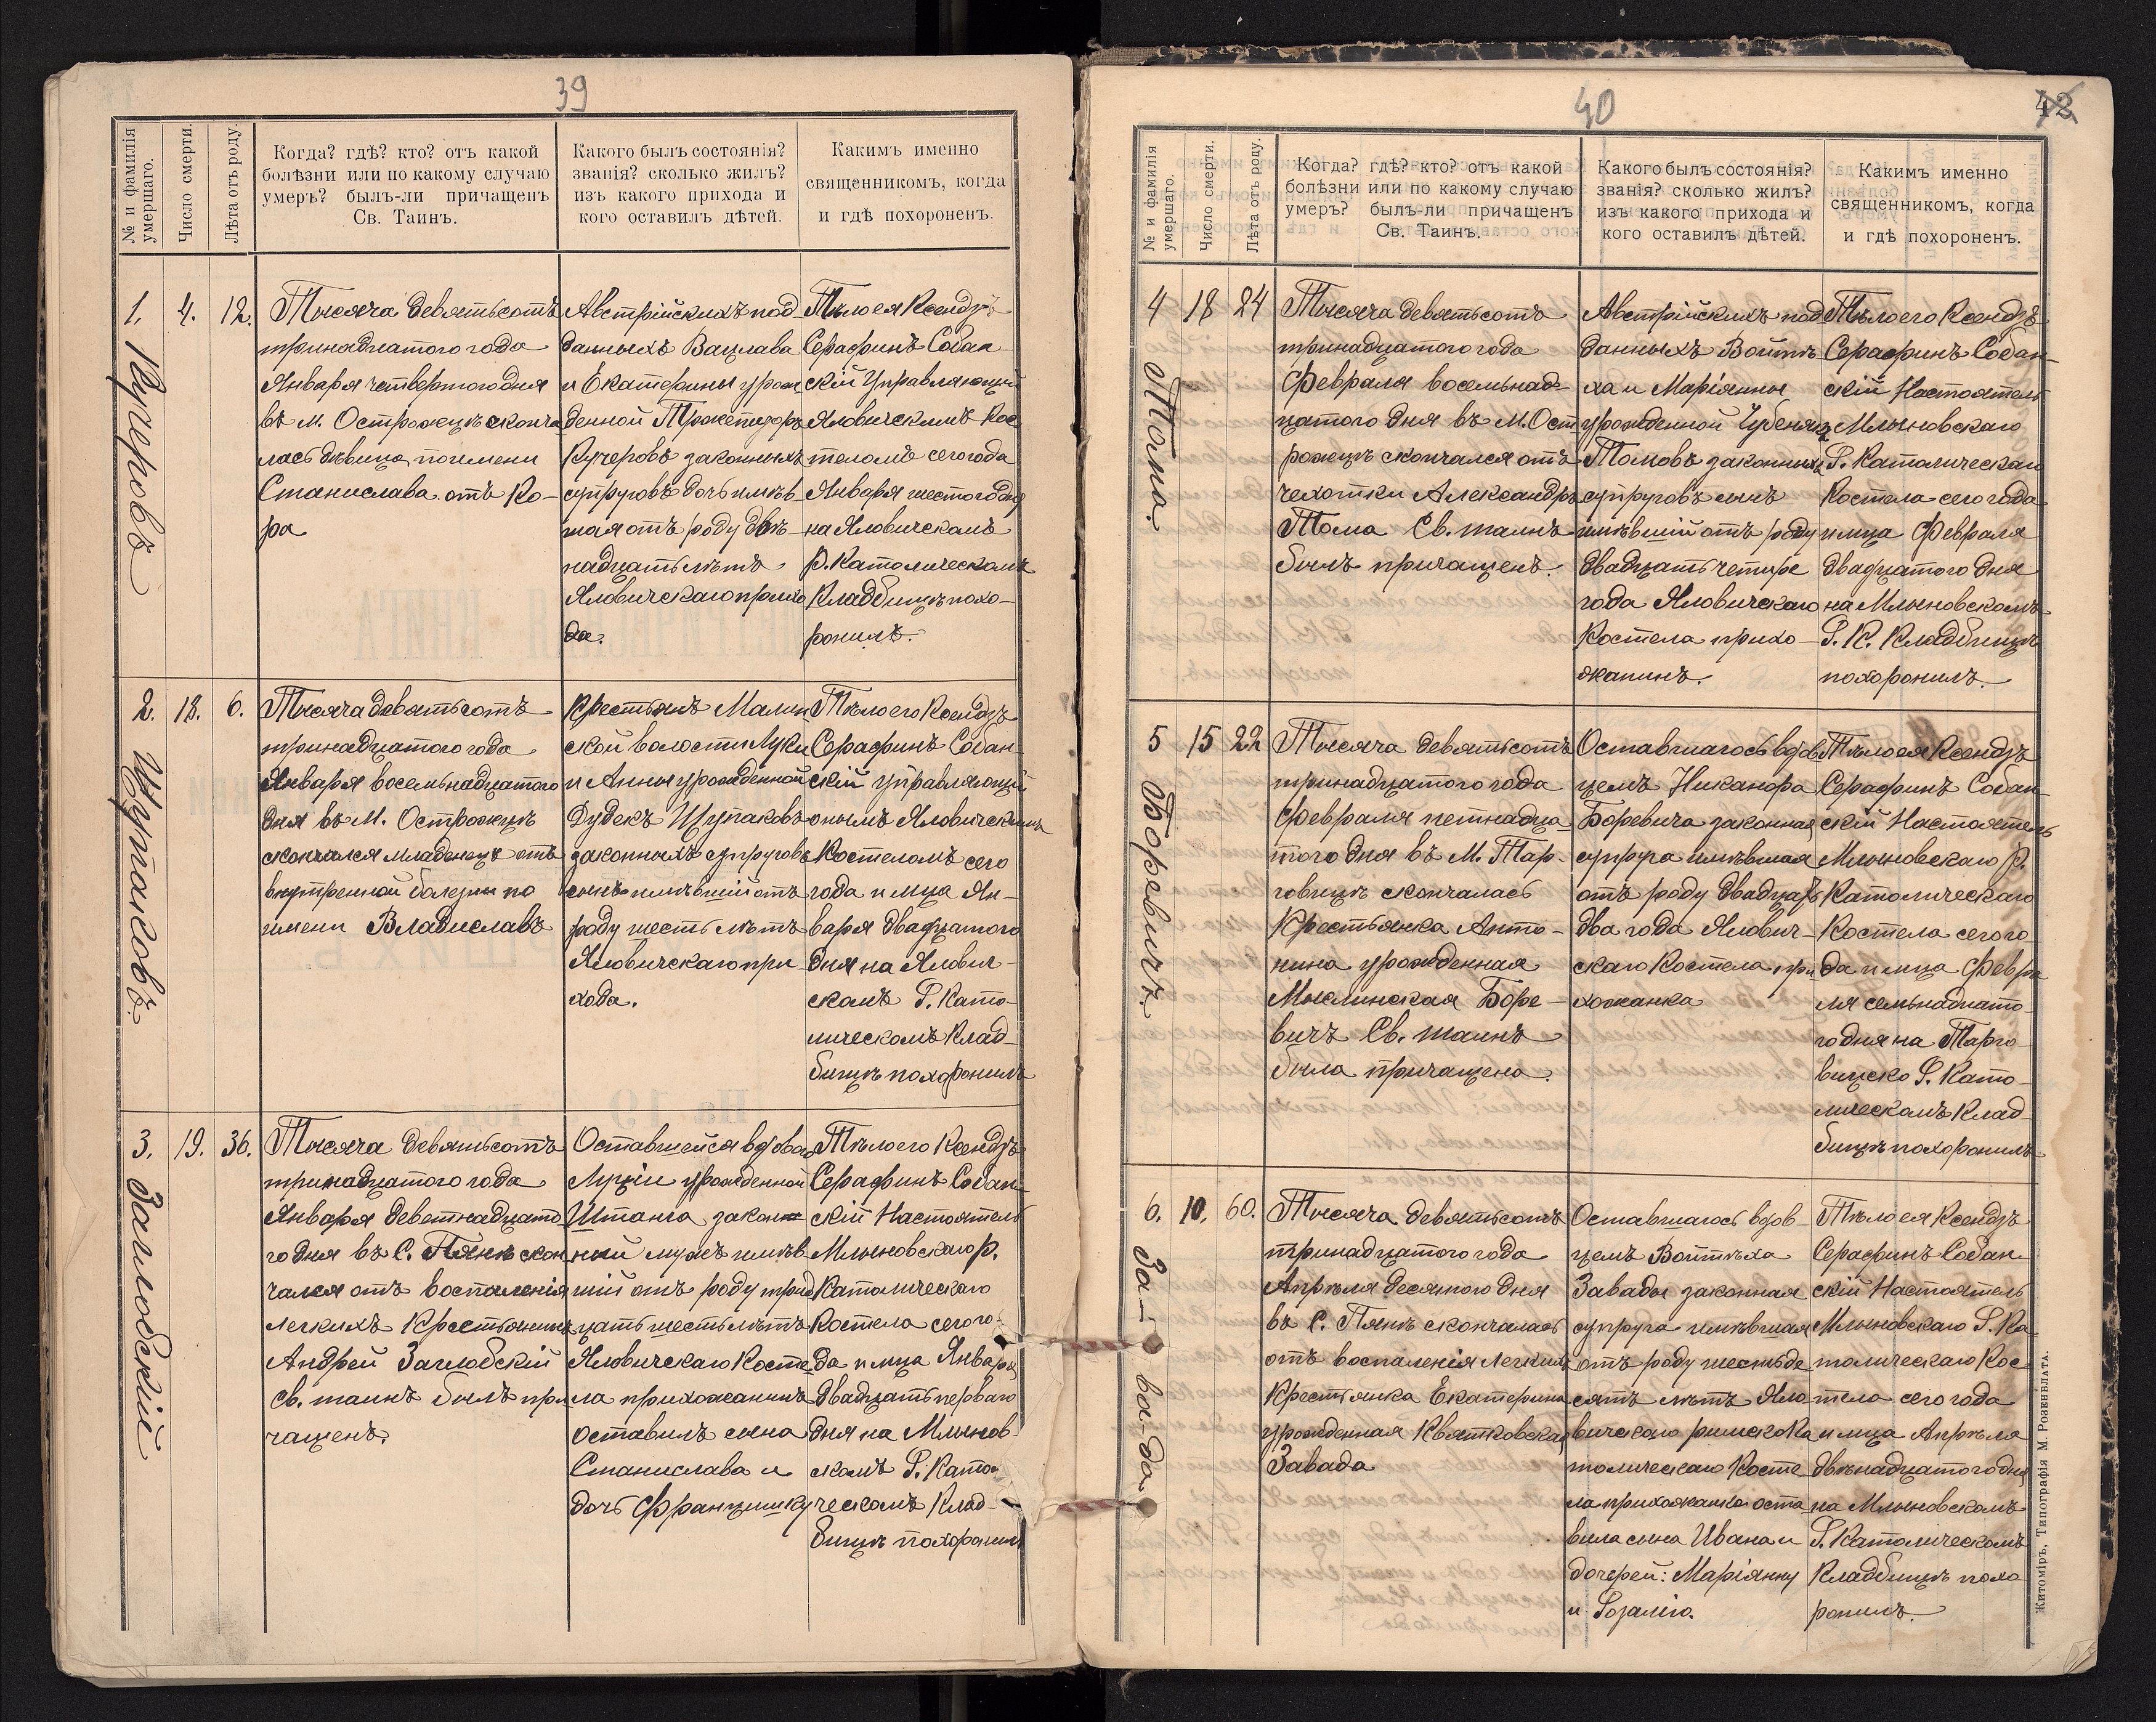 39
№ и фамилія умершаго.
Число смерти.
Лѣта отъ роду.
Когда? гдѣ? кто? отъ какой
болѣзни или по какому случаю
умеръ? былъ-ли причащенъ
Св. Таинъ.
Какого былъ состоянія?
званія? сколько жилъ?
изъ какого прихода и
кого оставилъ дѣтей.
Какимъ именно
священникомъ, когда
и гдѣ похороненъ.
1.
Кучеровъ
4.
12.
Тысяча девятьсотъ
тринадцатого года
Января четвертого дня
въ м. Острожцѣ сконча
лась дѣвица по имени
Станислава отъ Ко-
ра
Австрійскихъ под
данныхъ Вацлава
и Екатерины урож
денной
Кучеровъ законныхъ
супруговъ дочь имѣв
шая отъ роду двѣ-
надцать лѣтъ
Яловичскаго прихо
да.
Тѣло ея Ксендзъ
Серафинъ Собан
скій Управляющій
Яловичскимъ Кос
теломъ сего года
Января шестого дня
на Яловичскомъ
Р. Католическомъ
Кладбищѣ похо-
ронилъ.
2.
Щупаковъ.
18.
6.
Тысяча девятьсотъ
тринадцатого года
Января восемьнадцатого
дня въ М. Острожцѣ
скончался младенецъ отъ
внутренной болезни по
имени Владиславъ
Крестьянъ Малин
ской волости Луки
и Анны урожденной
Дудекъ Щупаковъ
законныхъ супруговъ
сынъ имѣвшій отъ
роду шесть лѣтъ
Яловичскаго при
хода.
Тѣло его Ксендзъ
Серафинъ Собан-
скій управляющій
онымъ Яловичскимъ
Костеломъ сего
года и мца Ян-
варя двадцатого
дня на Ялович-
скомъ Р. Като-
лическомъ Клад-
бищѣ похоронилъ
3.
Заглобскій
19.
36.
Тысяча девятьсотъ
тринадцатого года
Января деветнадцато
го дня въ С. Пянѣ скон
чался отъ воспаленія
легкихъ Крестьянинъ
Андрей Заглобскій
Св. таинъ былъ при
чащенъ.
Оставшейся вдовой
Луціи урожденной
Штанга закон
ный мужъ имѣв
шій отъ роду трид
цать шесть лѣтъ
Яловичскаго Косте
ла прихожанинъ
оставилъ сына
Станислава и
дочь Францишку
Тѣло его Ксендзъ
Серафинъ Собан-
скій Настоятель
Млыновскаго Р.
Католическаго
Костела сего го-
да и мца Января
двадцать перваго
дня на Млынов
скомъ Р. Като-
ческомъ Клад-
бищѣ похоронилъ
40
42
№ и фамилія умершаго.
Число смерти.
Лѣта отъ роду.
Когда? гдѣ? кто? отъ какой
болѣзни или по какому случаю
умеръ? былъ-ли причащенъ
Св. Таинъ.
Какого былъ состоянія?
званія? сколько жилъ?
изъ какого прихода и
кого оставилъ дѣтей.
Какимъ именно
священникомъ, когда
и гдѣ похороненъ.
4
Тома.
18
24
Тысяча девятьсотъ
тринадцатого года
Февраля восемьнад-
цатого дня въ М. Ост-
рожецѣ скончался отъ
чехотки Александръ
Тома Св. таинъ
былъ причащенъ.
Австрійскихъ под
данныхъ Войтѣ
ха и Маріянны
урожденной
Томовъ законныхъ
супруговъ сынъ
имѣвшій отъ роду
двадцать четыре
года Яловичскаго
Костела прихо-
жанинъ.
Тѣло его Ксендзъ
Серафинъ Собан-
скій Настоятель
Млыновскаго
Р. Католическаго
Костела сего года
и мца Февраля
двадцатого дня
на Млыновскомъ
Р. К. Кладбищѣ
похоронилъ.
5
Боревичъ.
15
22
Тысяча девятьсотъ
тринадцатого года
Февраля петнадца-
того дня въ М. Тар-
говицѣ скончалась
Крестьянка Анто-
нина урожденная
Мыслинская Боре-
вичъ Св. таинъ
была причащена.
Оставшагось вдов
цемъ Никанора
Боревича законная
супруга имѣвшая
отъ роду двадцать
два года Ялович-
скаго Костела при
хожанка
Тѣло ея Ксендзъ
Серафинъ Собан-
скій Настоятель
Млыновскаго Р.
Католическаго
Костела сего го
да и мца Февра
ля семьнадцато-
го дня на Тарго-
вицско Р. Като-
лическомъ Клад-
бищѣ похоронилъ
6.
За-ва-да
10.
60.
Тысяча девятьсотъ
тринадцатого года
Апрѣля десятого дня
въ С. Пянѣ скончалась
отъ воспаленія легкихъ
Крестьянка Екатерина
урожденная Квятковская
Завада
Оставшагось вдов-
цемъ Войтѣха
Завады законная
супруга имѣвшая
отъ роду шестьде
сятъ лѣтъ Яло
вичскаго римско Ка
толическаго Косте
ла прихожанка оста
вила сына Ивана и
дочерей: Маріянну
и Розалію.
Тѣло ея Ксендзъ
Серафинъ Собан
скій Настоятель
Млыновскаго Р. Ка
толическаго Кос
тела сего года
и мца Апрѣля
двѣнадцатого дня
на Млыновскомъ
Р. Католическомъ
Кладбищѣ похо
ронилъ.
Житоміръ, Типографія М. Розенблата.